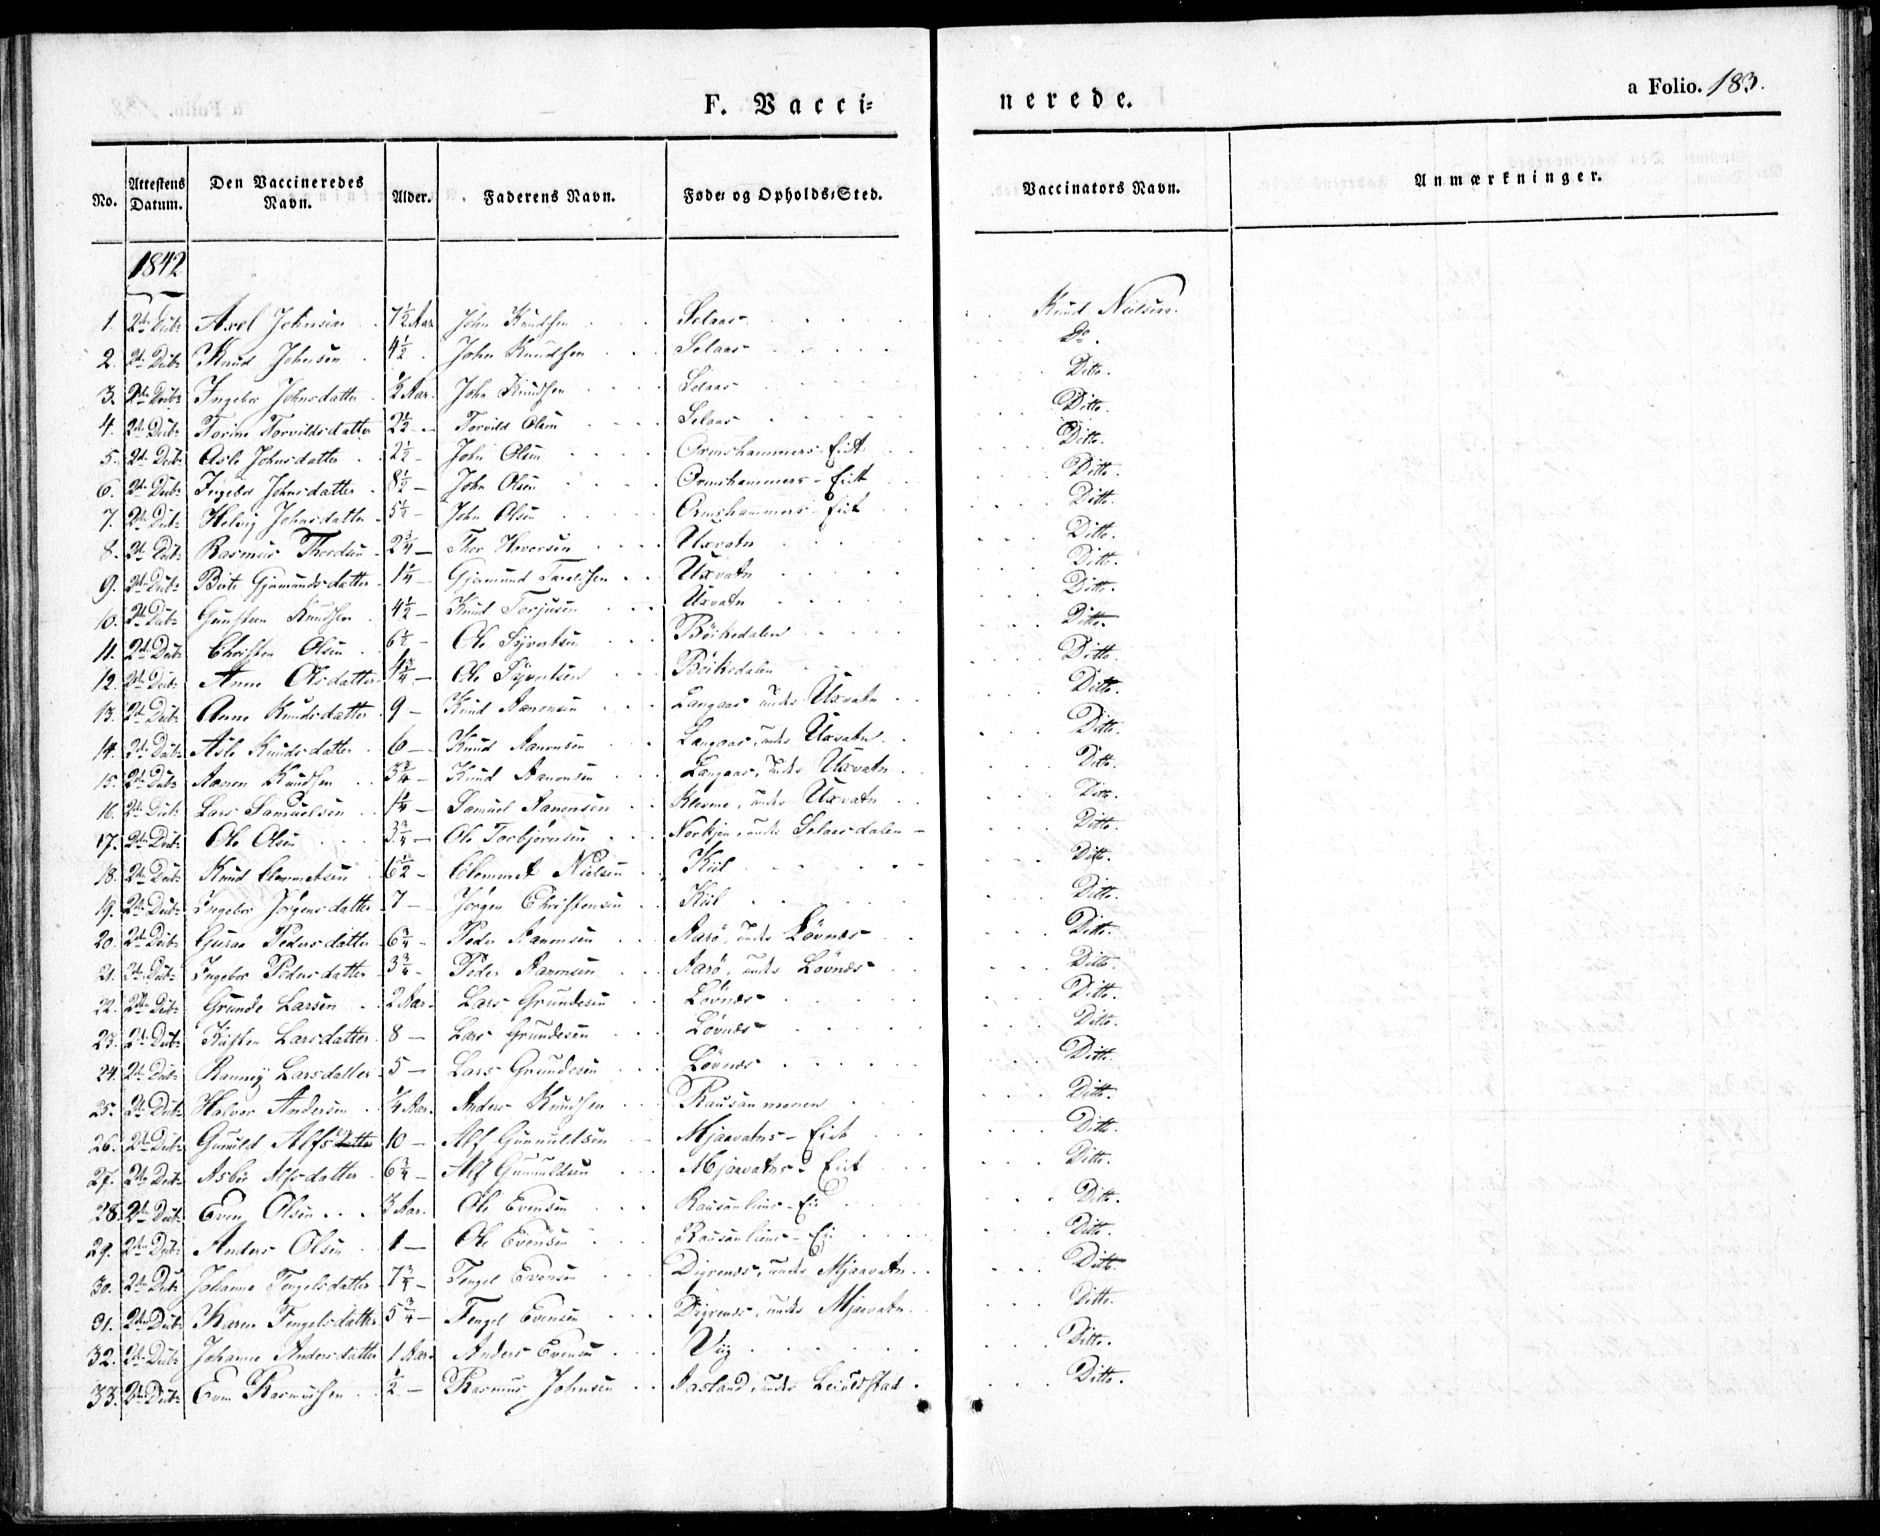 F. Vacci=
nerede.
a Folio. 183.
No. | Attestens Datum. | Den Vaccineredes Navn. | Alder. | Faderens Navn. | Føde= og Opholds=Sted. | Vaccinators Navn. | Anmærkninger.
1842
1. Axel Johnsen 7½ Aar John Knudsen Selaas Knud Nielsen.
2. Knud Johnsen 4½ John Knudsen Selaas Do.
3. Ingebor Johnsdatter ½ Aar. John Knudsen Selaas Ditto.
4. Torine Torvildsdatter 2½ - Torvild Olsen Selaas Ditto.
5. Asle Johnsdatter 2½ - John Olsen Ormshammers-Eiet Ditto.
6. Ingebor Johnsdatter 8½ - John Olsen Ormshammers-Eiet Ditto.
7. Helvig Johnsdatter 5½ - John Olsen Ormshammers-Eiet Ditto.
8. Rasmus Thordsen 2¾ - Thor Hoversen Uxvatn Ditto.
9. Birte Gjermundsdatter 1¼ - Gjermund Taraldsen Uxvatn Ditto.
10. Gunsteen Knudsen 4½ - Knud Torjusen Uxvatn Ditto.
11. Christen Olsen 6½ - Ole Syvertsen Böikedalen Ditto.
12. Anne Olsdatter 4¾ - Ole Syvertsen Böikedalen Ditto.
13. Anne Knudsdatter 9 - Knud Aanonsen Langaas under Uxvatn Ditto.
14. Asle Knudsdatter 6 - Knud Aanonsen Langaas, under Uxvatn Ditto.
15. Aanon Knudsen 3¾ - Knud Aanonsen Langaas, under Uxvatn Ditto.
16. Lars Samuelsen 1¼ - Samuel Aanonsen under Uxvatn Ditto.
17. Ole Olsen 3¾ - Ole Torbjørnsen under Selaasdalen Ditto.
18. Knud Clemmetsen 6½ - Clemmet Nielsen Kiil Ditto.
19. Ingebor Jørgensdatter 7 - Jørgen Christensen Kiil Ditto.
20. Guroe Pedersdatter 6¾ - Peder Aanonsen Aarö, under Lövnæs Ditto.
21. Ingebor Pedersdatter 3¾ - Peder Aanonsen Aarö, under Lövnæs Ditto.
22. Grunde Larsen 2 Aar. Lars Grundesen Lövnæs Ditto.
23. Kirsten Larsdatter 8 - Lars Grundesen Lövnæs Ditto.
24. Ranney Larsdatter 5 - Lars Grundesen Lövnæs Ditto.
25. Halvor Andersen ¼ Aar. Anders Knudsen Rausanmoenen Ditto.
26. Gunuld Alfs 10 - Alf Gunnuldsen Mjaavatns-Eiet Ditto.
27. Asbor Alfsdatter 6¾ - Alf Gunnuldsen Mjaavatns-Eiet Ditto.
28. Even Olsen 3 Aar. Ole Evensen Ditto.
29. Anders Olsen 1 - Ole Evensen Ditto.
30. Johanne Fengelsdatter 7¾ - Fengel Evensen Digrenæs, under Mjaavatn Ditto.
31. Karen Fengelsdatter 5¾ - Fengel Evensen Digrenæs, under Mjaavatn Ditto.
32. Johanne Andersdatter 1 Aar. Anders Evensen Viig Ditto.
33. Even Rasmussen ½ - Rasmus Johnsen Aasland under Ditto.